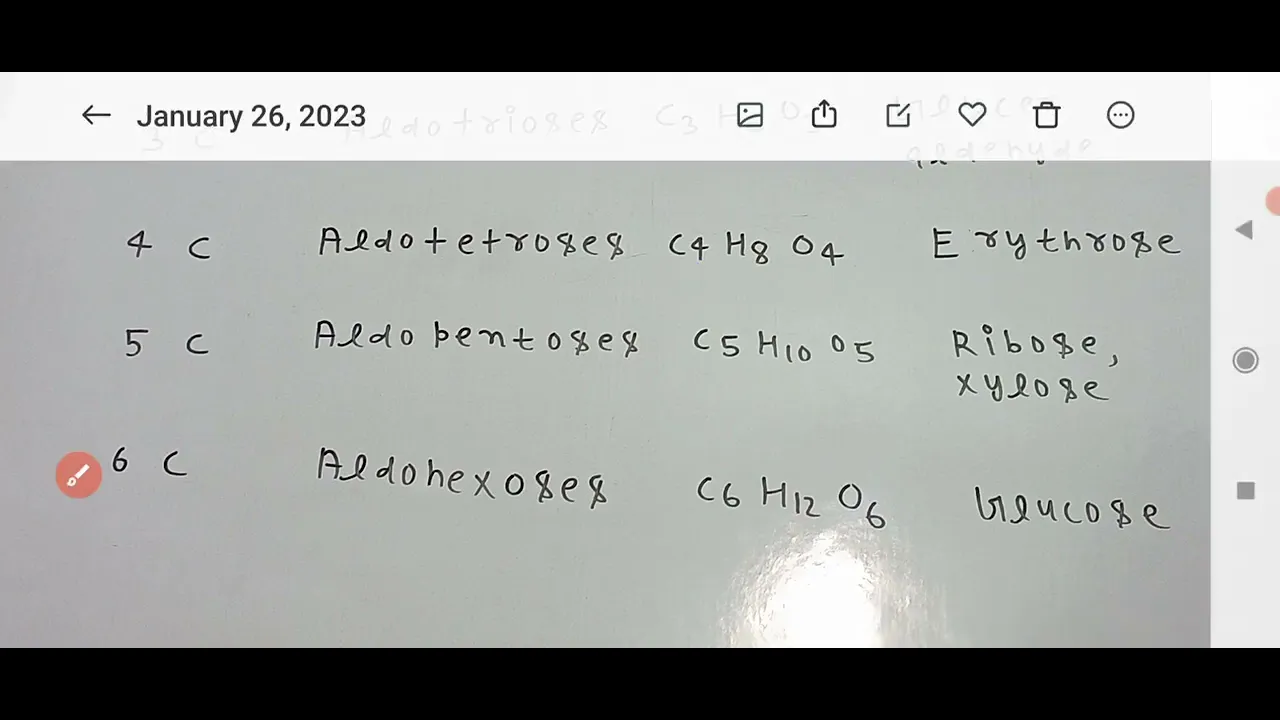 January 26, 2023
3 C Aldotrioses C3 H O
aldehyde
4 C Aldotetroses C4 H8 O4 Erythrose
5 C Aldopentoses C5 H10 O5 Ribose,
xylose
6 C Aldohexoses C6 H12 O6 Glucose